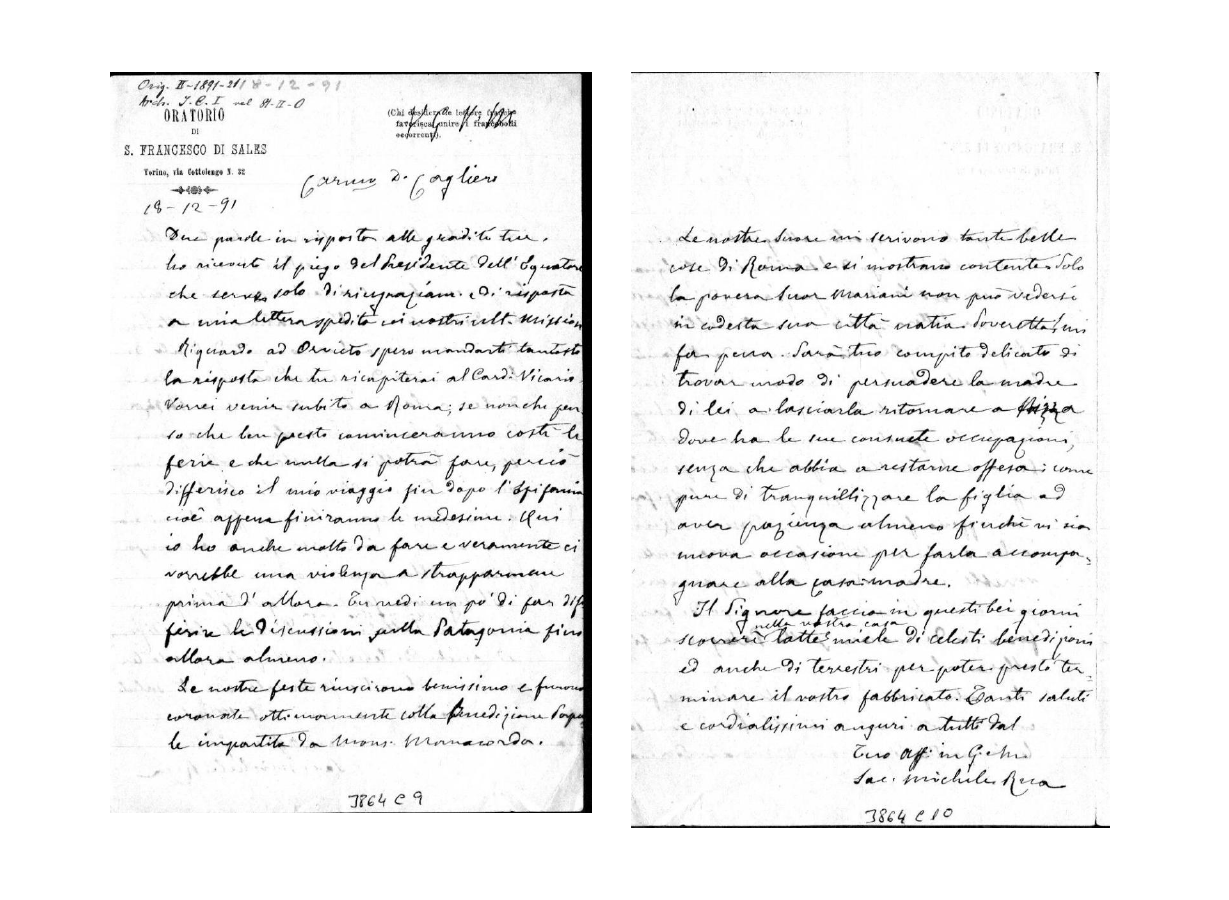 Orig. II-1891-21 18-12-91
Arch. S.C.I nel 81-II-0
ORATORIO
DI
S. FRANCESCO DI SALES
Torino, via Cottolengo N. 32
(Chi desiderasse lettere
favorisca unire i francobolli
occorrenti).
Carmo D. Cagliero
18-12-91
Due parole in risposta alle gradite tue.
ho ricevuto il piego del Presidente dell' Equatore
che serve solo di ringraziam. e di risposta
a mia lettera spedita coi nostri ult. mission
Riguardo ad Orvieto spero mandarti tantosto
la risposta che tu ricapiterai al Card. Vicario.
Vorrei venir subito a Roma; se non che pen
so che ben presto cominceranno costì le
ferie, e che nulla si potrà fare, perciò
differisco il mio viaggio fin dopo l'Epifania
cioè appena finiranno le medesime. Qui
io ho anche molto da fare e veramente ci
vorrebbe una violenza a strapparmene
prima d' allora. Tu vedi un po' di far dif
ferire le discussioni sulla Patagonia fino
allora almeno.
Le nostre feste riuscirono benissimo e furono
coronate ottimamente colla Benedizione Papa
le impartita da Mons. Manacorda.
3864 C 9
Le nostre Suore mi scrivono tante belle
cose di Roma e si mostrano contente. Solo
la povera Suor Mariani non può vedersi
in codesta sua città natia. Poveretta! mi
fa pena. Sarà tuo compito delicato di
trovar modo di persuadere la madre
di lei a lasciarla ritornare a Nizza
dove ha le sue consuete occupazioni,
senza che abbia a restarne offesa: come
pure di tranquillizzare la figlia ad
aver pazienza almeno finchè vi sia
nuova occasione per farla accompa-
gnare alla casa madre.
Il Signore faccia in questi bei giorni
nella vostra casa
scorrere latte e miele di celesti benedizioni
ed anche di terrestri per poter presto ter-
minare il vostro fabbricato. Tanti saluti
e cordialissimi auguri a tutti dal
Tuo aff. in G. e M.
Sac. Michele Rua
3864 C 10